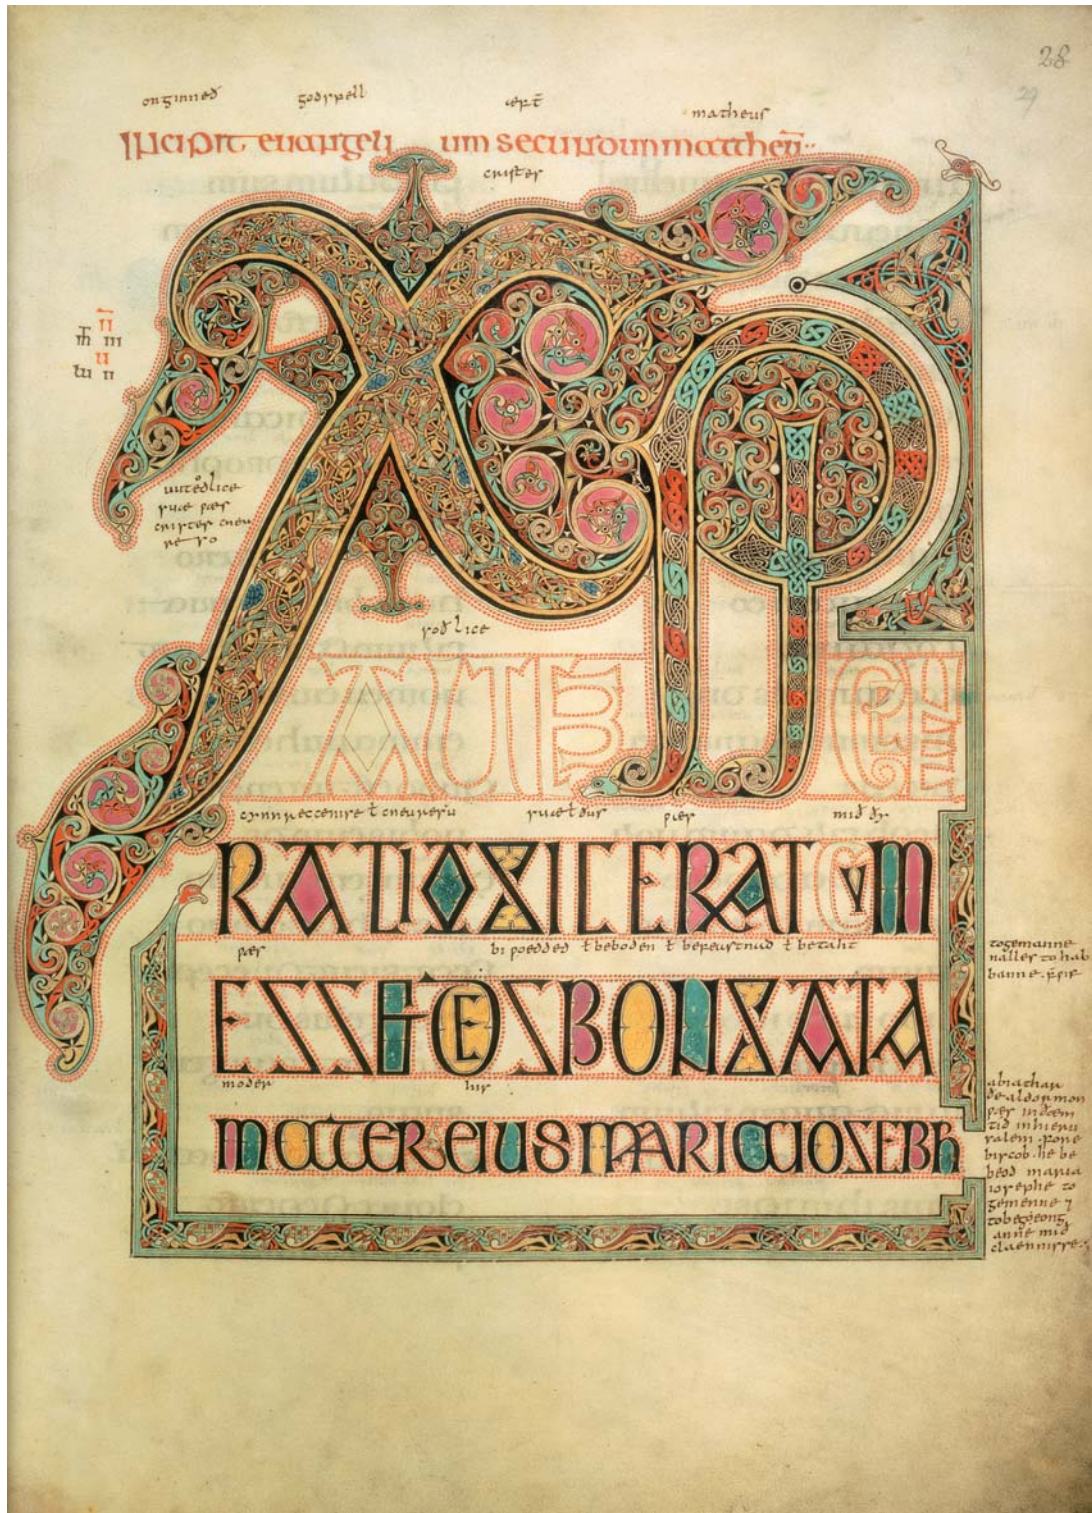 28
29
onginneð godspell æft̄ matheus
incipit euangelium secundum mattheū
cristes
XPI
uutedlice
suæ wæs
cristes cneu
reso
soðlice
AUTEM GENE
cynnreccenise ł cneuresu suæ ł ðus wæs mið ðy
RATIO SIC ERAT CUM
wæs bi woedded ł beboden ł befeastnad ł betaht
to gemanne
nalles to hab
banne
ESSET DESPONSATA
moder his
MATER EIUS MARIA IOSEBH
abiathar
ðe aldormon
wæs in ðæm
tid in hieru
salem
biscob . he be
bead maria
iosephe to
gemenne 7
to begeong
anne mið
clænnisse